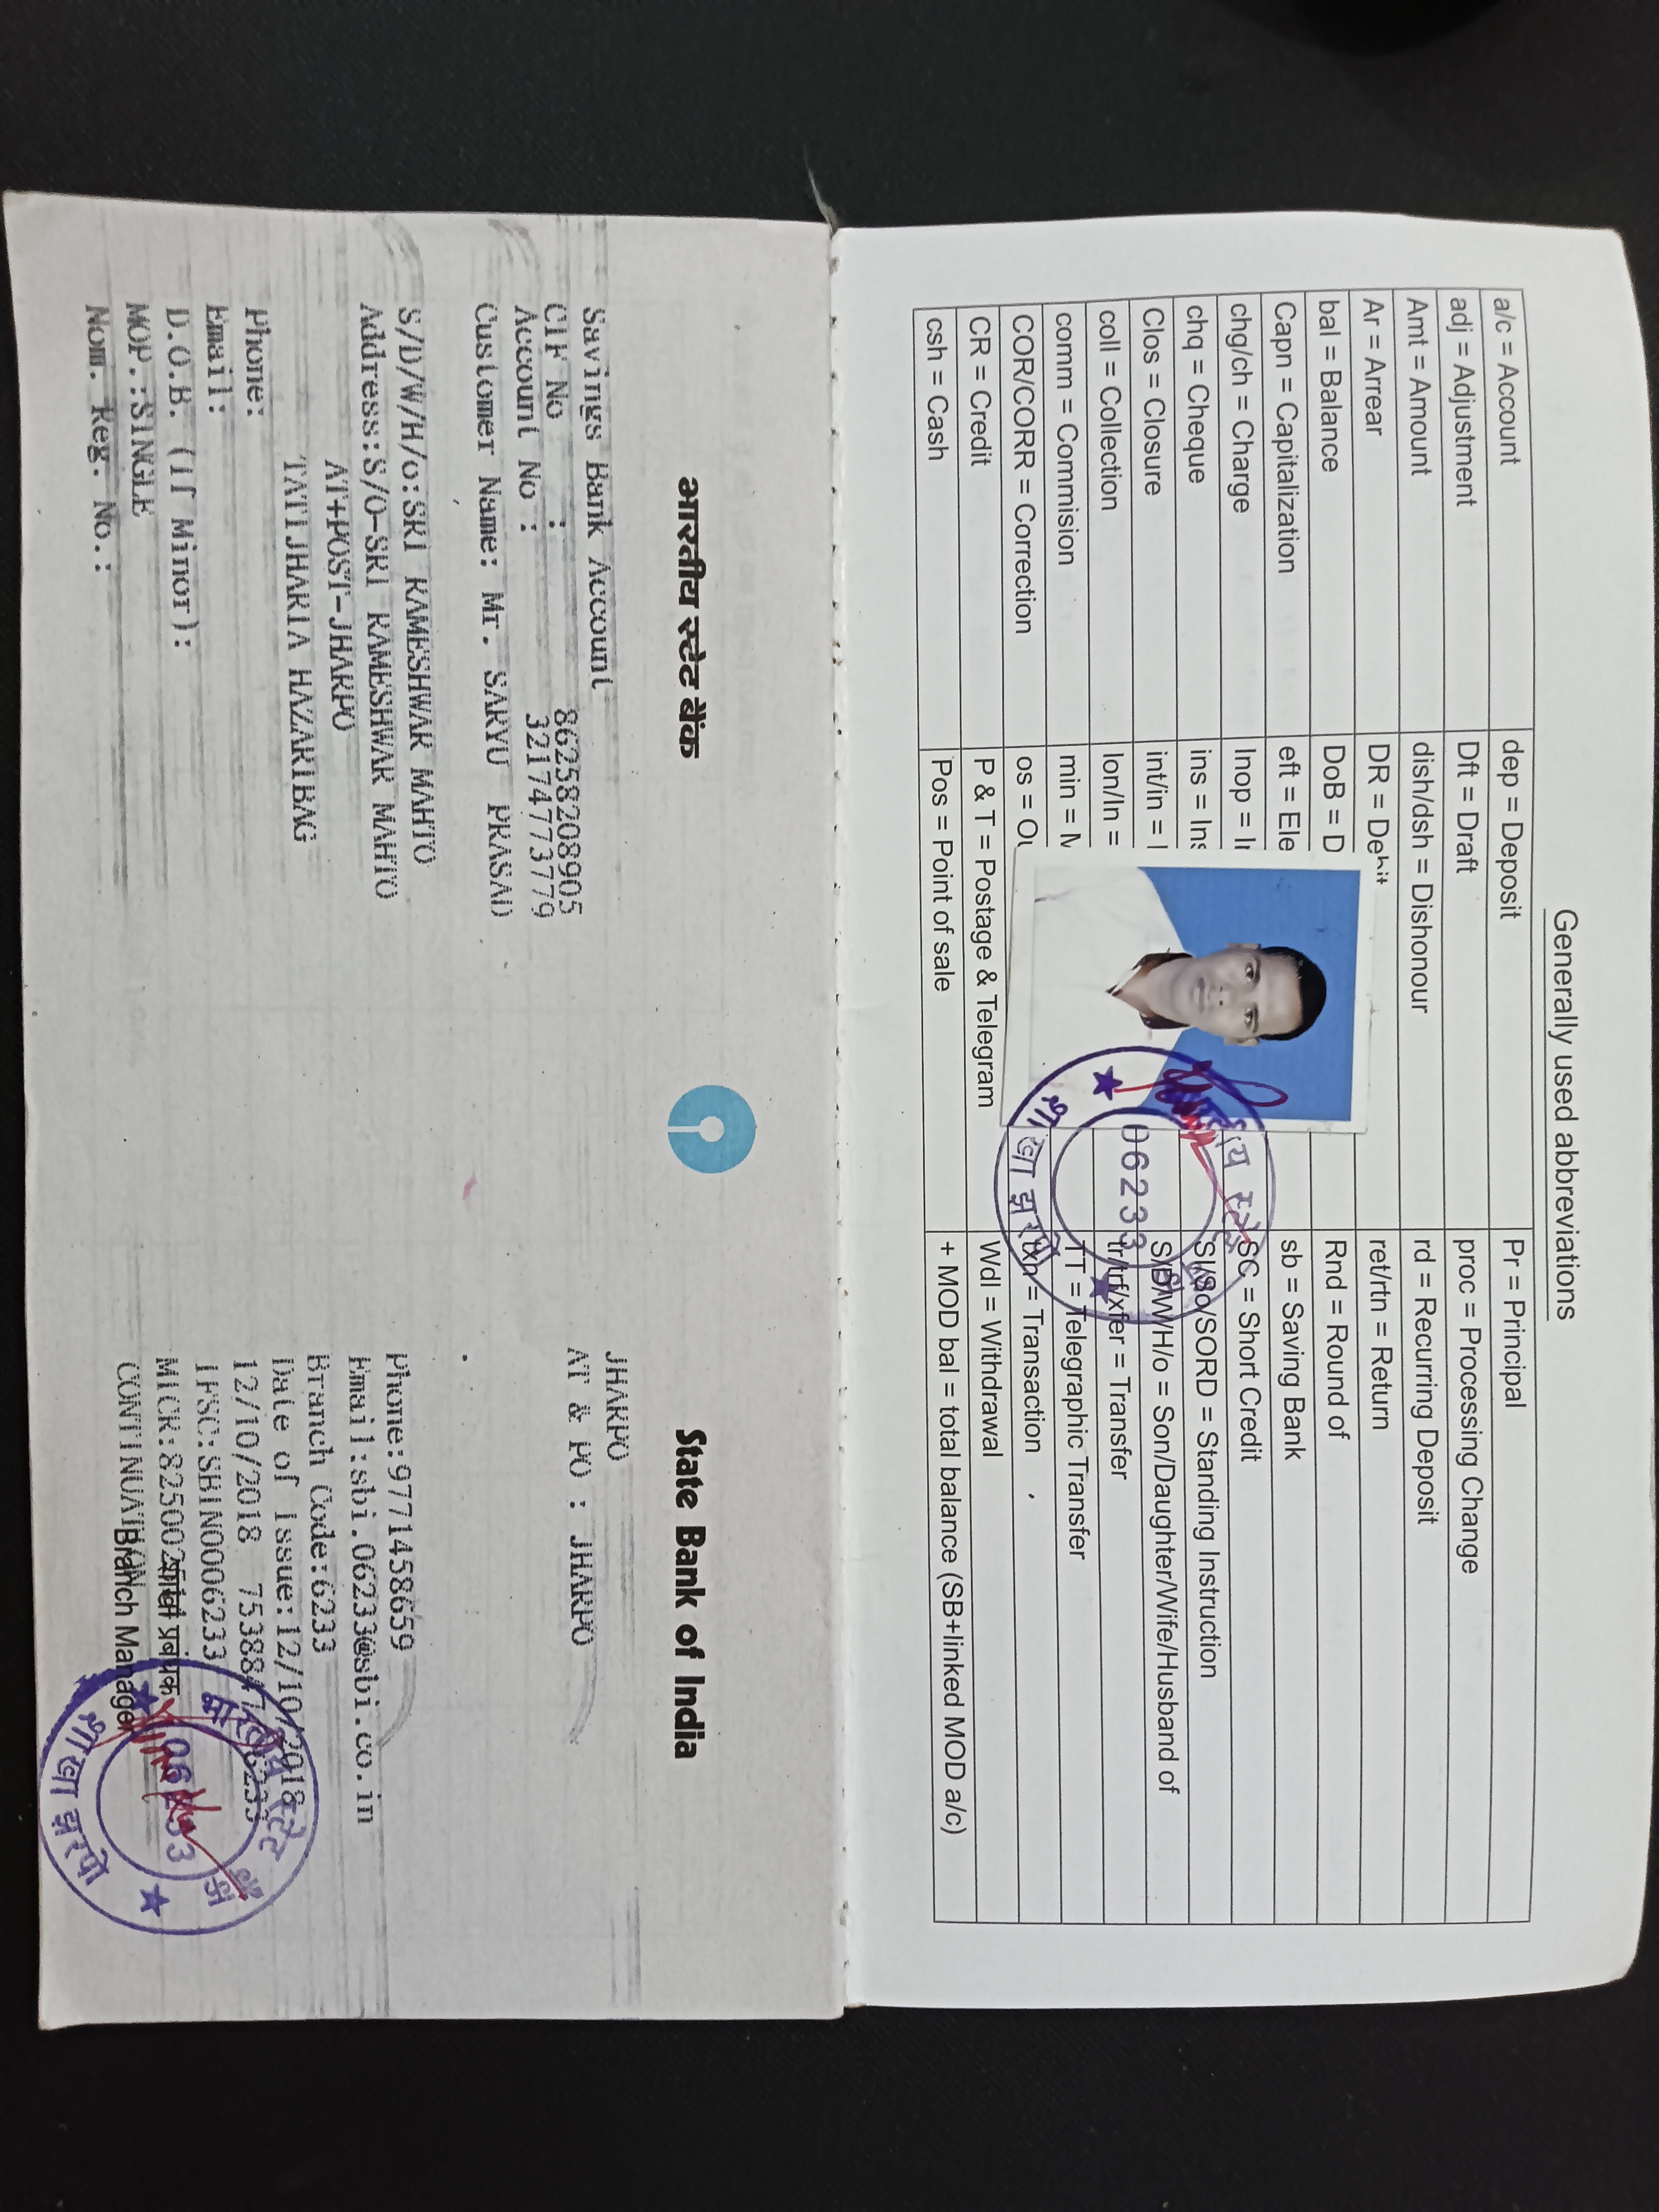 Generally used abbreviations
a/c = Account dep = Deposit Pr = Principal
adj = Adjustment Dft = Draft proc = Processing Change
Amt = Amount dish/dsh = Dishonour rd = Recurring Deposit
Ar = Arrear DR = Debit ret/rtn = Return
bal = Balance DoB = D Rnd = Round of
Capn = Capitalization eft = Ele sb = Saving Bank
chg/ch = Charge Inop = SC = Short Credit
chq = Cheque ins = Ins SI/So/SORD = Standing Instruction
Clos = Closure int/in = S/D/W/H/o = Son/Daughter/Wife/Husband of
coll = Collection lon/ln = tr/trf/xfer = Transfer
comm = Commision min = TT = Telegraphic Transfer
COR/CORR = Correction os = txn = Transaction
CR = Credit P & T = Postage & Telegram Wdl = Withdrawal
csh = Cash Pos = Point of sale + MOD bal = total balance (SB+linked MOD a/c)
06233
शाखा झरपो
भारतीय स्टेट बैंक State Bank of India
Savings Bank Account JHARPO
CIF No : 86258208905 AT & PO : JHARPO
Account No : 32174773779
Customer Name: Mr. SARYU PRASAD
S/D/W/H/o:SRI RAMESHWAR MAHTO Phone:9771458659
Address:S/O-SRI RAMESHWAR MAHTO Email:sbi.06233@sbi.co.in
AT+POST-JHARPO Branch Code:6233
TATIJHARIA HAZARIBAG Date of issue:12/10/2018
Phone: 12/10/2018 6233
Email: IFSC:SBIN0006233
D.O.B. (If Minor): शाखा प्रबंधक
MOP.:SINGLE CONTINUATION Branch Manager
Nom. Reg. No.:
भारतीय स्टेट बैंक
06233
शाखा झरपो